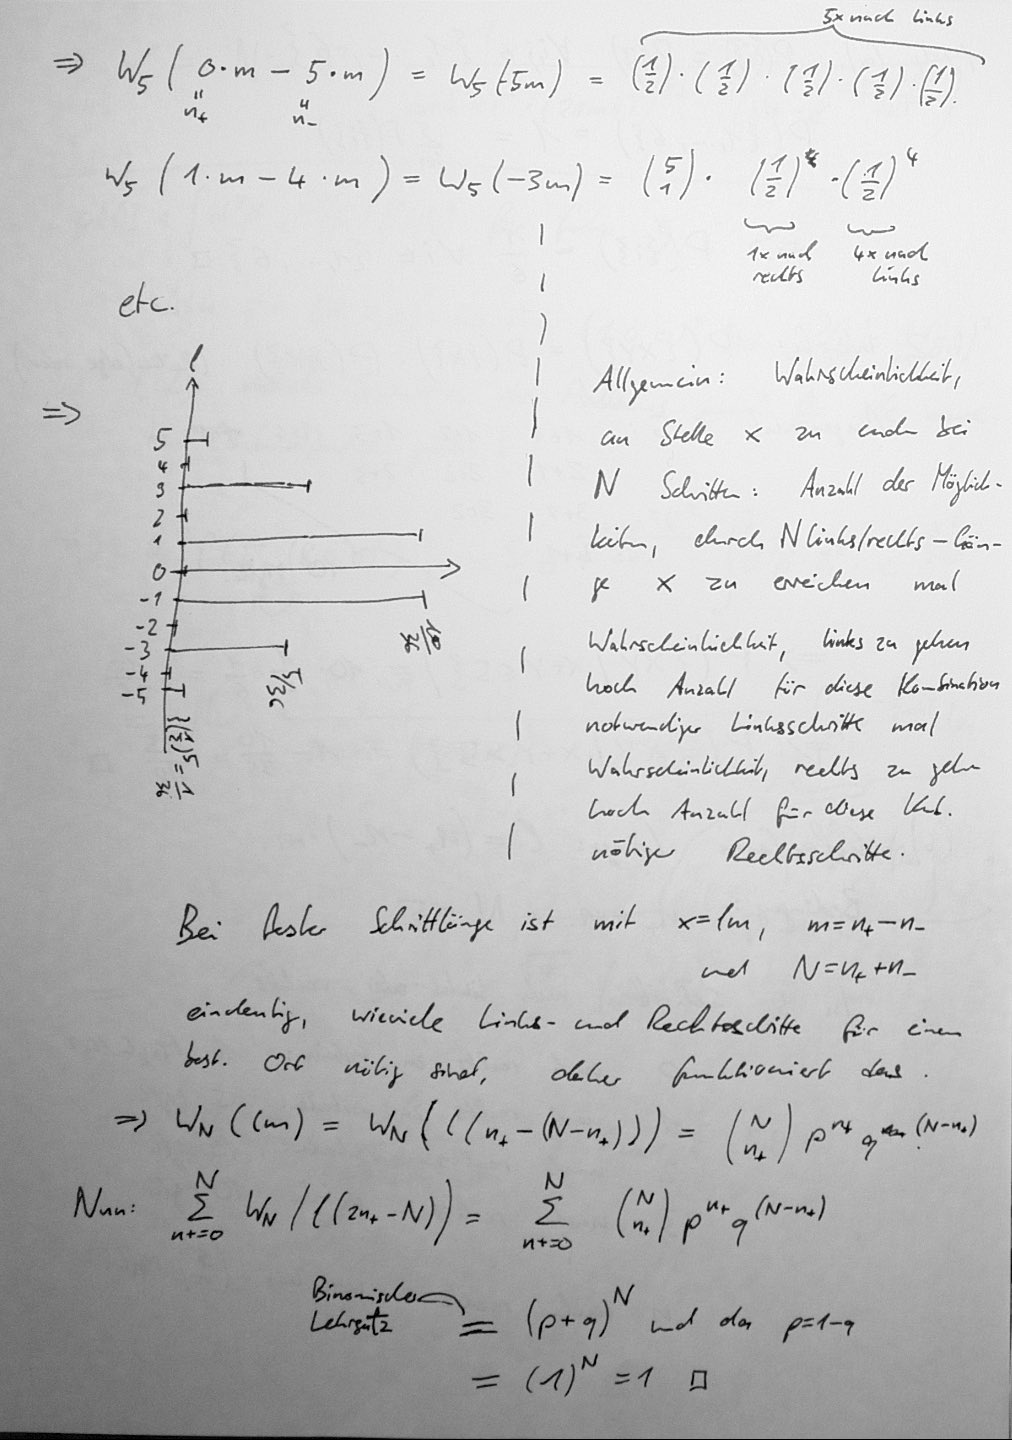 5x nach links
⇒ W₅(0·m − 5·m) = W₅(−5m) = (1/2)·(1/2)·(1/2)·(1/2)·(1/2).
" n₊ " n₋
W₅(1·m − 4·m) = W₅(−3m) = (5 1)· (1/2) ·(1/2)⁴
1x nach rechts
4x nach links
etc.
⇒
l
5
4
3
2
1
0
-1
-2
-3
-4
-5
10/36
5/36
}(1/2)⁵ = 1/36
Allgemein: Wahrscheinlichkeit,
an Stelle x zu enden bei
N Schritten: Anzahl der Möglich-
keiten, durch N links/rechts-Gän-
ge x zu erreichen mal
Wahrscheinlichkeit, links zu gehen
hoch Anzahl für diese Kombination
notwendiger Linksschritte mal
Wahrscheinlichkeit, rechts zu gehen
hoch Anzahl für diese Kmb.
nötiger Rechtsschritte.
Bei fester Schrittlänge ist mit x=lm, m=n₊−n₋
und N=n₊+n₋
eindeutig, wieviele Links- und Rechtsschritte für einen
best. Ort nötig sind, daher funktioniert das.
⇒ W_N(lm) = W_N(l(n₊−(N−n₊))) = (N n₊) p^n₊ q^(N−n₊)
Nun: ∑_{n₊=0}^N W_N(l(2n₊−N)) = ∑_{n₊=0}^N (N n₊) p^n₊ q^(N−n₊)
Binomischer
Lehrsatz
= (p+q)^N und da p=1−q
= (1)^N = 1 □